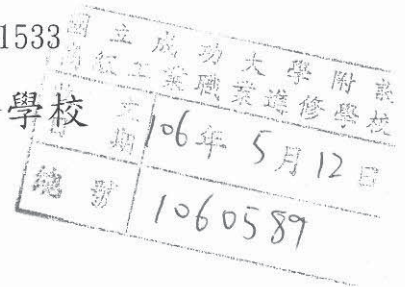 1533
國立成功大學附設
高級工業職業進修學校
學校
收文日期 106年 5月12日
總號 1060589